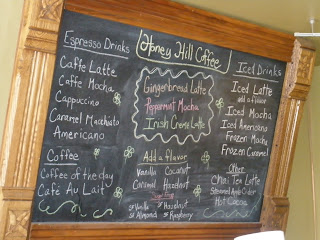 Honey Hill Coffee
Espresso Drinks
Caffe Latte
Caffe Mocha
Cappuccino
Caramel Macchiato
Americano
Coffee
Coffee of the day
Café Au Lait
Gingerbread Latte
Peppermint Mocha
Irish Creme Latte
Add a flavor
Vanilla Coconut
Caramel Hazelnut
SF Vanilla SF Hazelnut
SF Almond SF Raspberry
Iced Drinks
Iced Latte
add a flavor
Iced Mocha
Iced Americano
Frozen Mocha
Frozen Caramel
Other
Chai Tea Latte
Steamed Apple Cider
Hot Cocoa